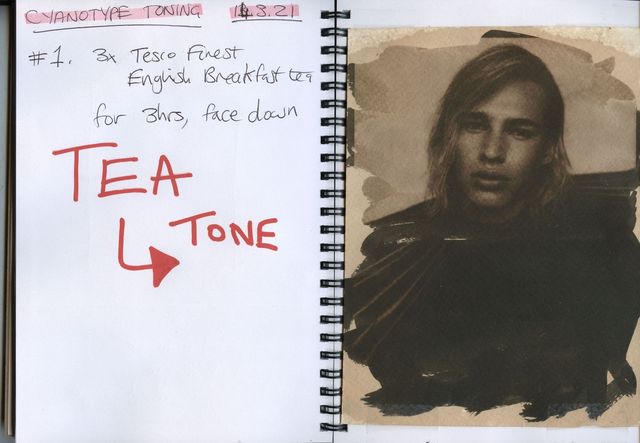 CYANOTYPE TONING 14.3.21
#1. 3x Tesco Finest
English Breakfast tea
for 3hrs, face down
TEA
TONE